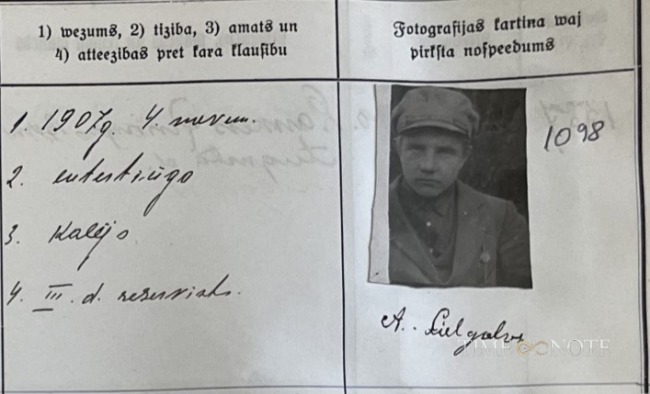 1) wezums, 2) tiziba, 3) amats un
4) atteezibas pret kara klausibu
Fotografijas kartina waj
pirksta nospeedums
1. 1907g. 4. novem.
2. lutertizigo
3. Kalējs
4. III. d. reserviists.
1098
A. Lielgalvs
TIMENOTE